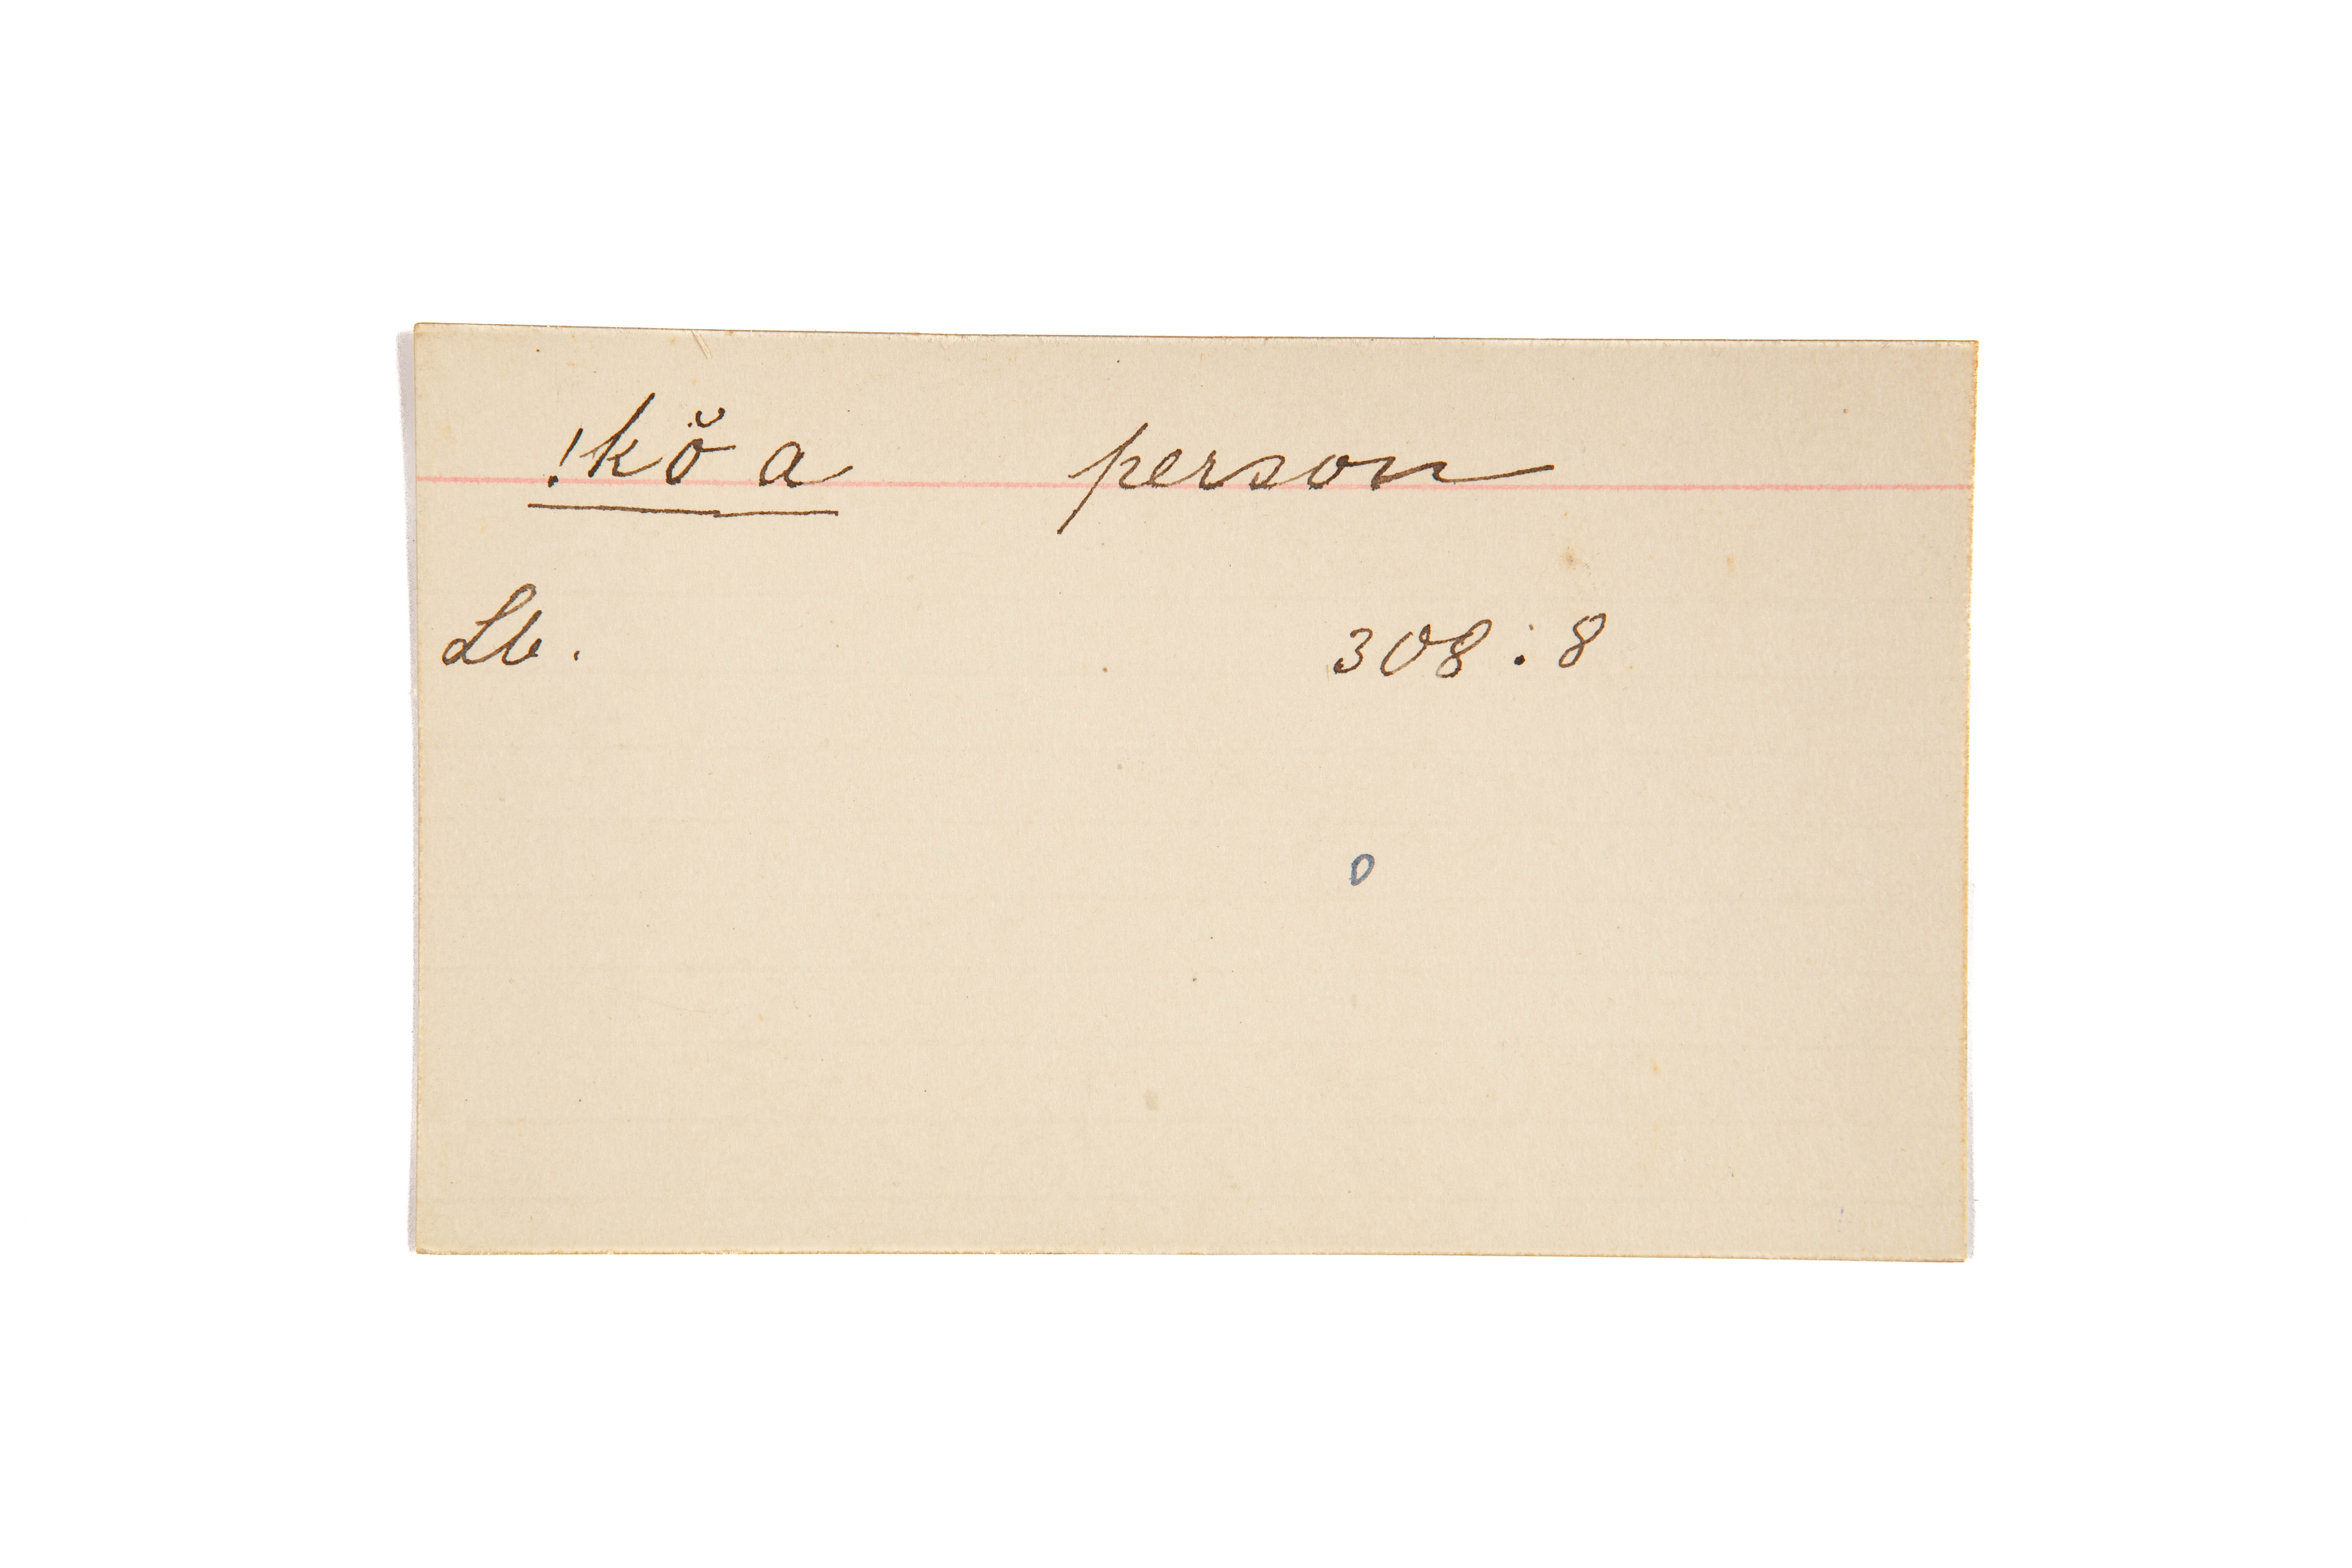 !kŏ a person
Lb. 308 : 8
o